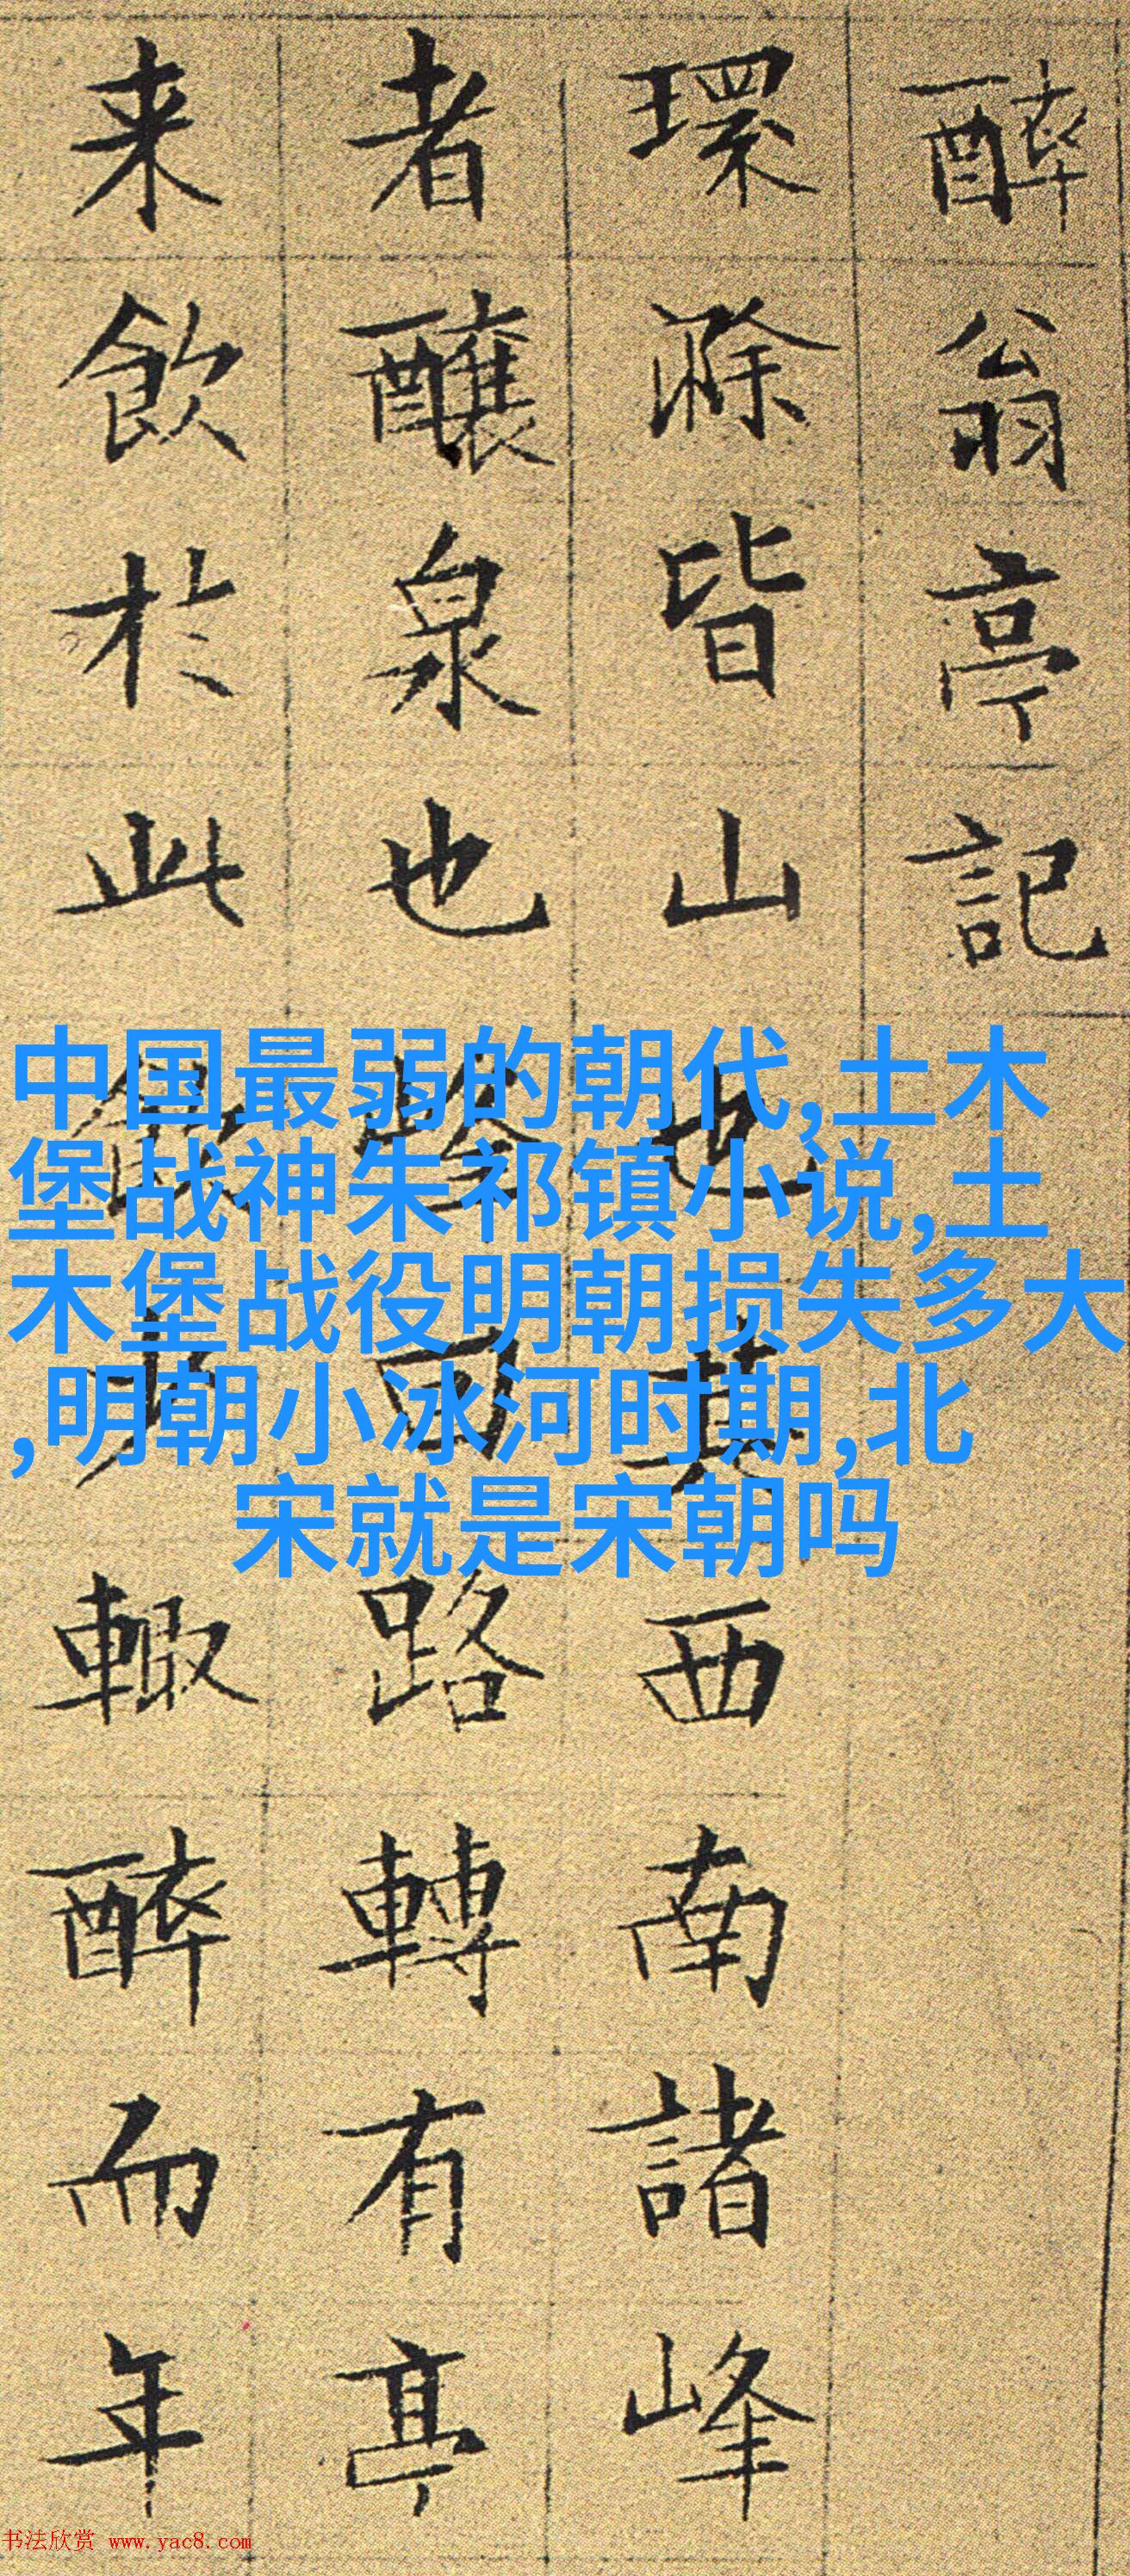 醉翁亭記
環滁皆山也其西南諸峰
者釀泉也峰回路轉有亭
来飲於此飲少輒醉而年
中国最弱的朝代,土木
堡战神朱祁镇小说,土
木堡战役明朝损失多大
,明朝小冰河时期,北
宋就是宋朝吗
书法欣赏 www.yac8.com